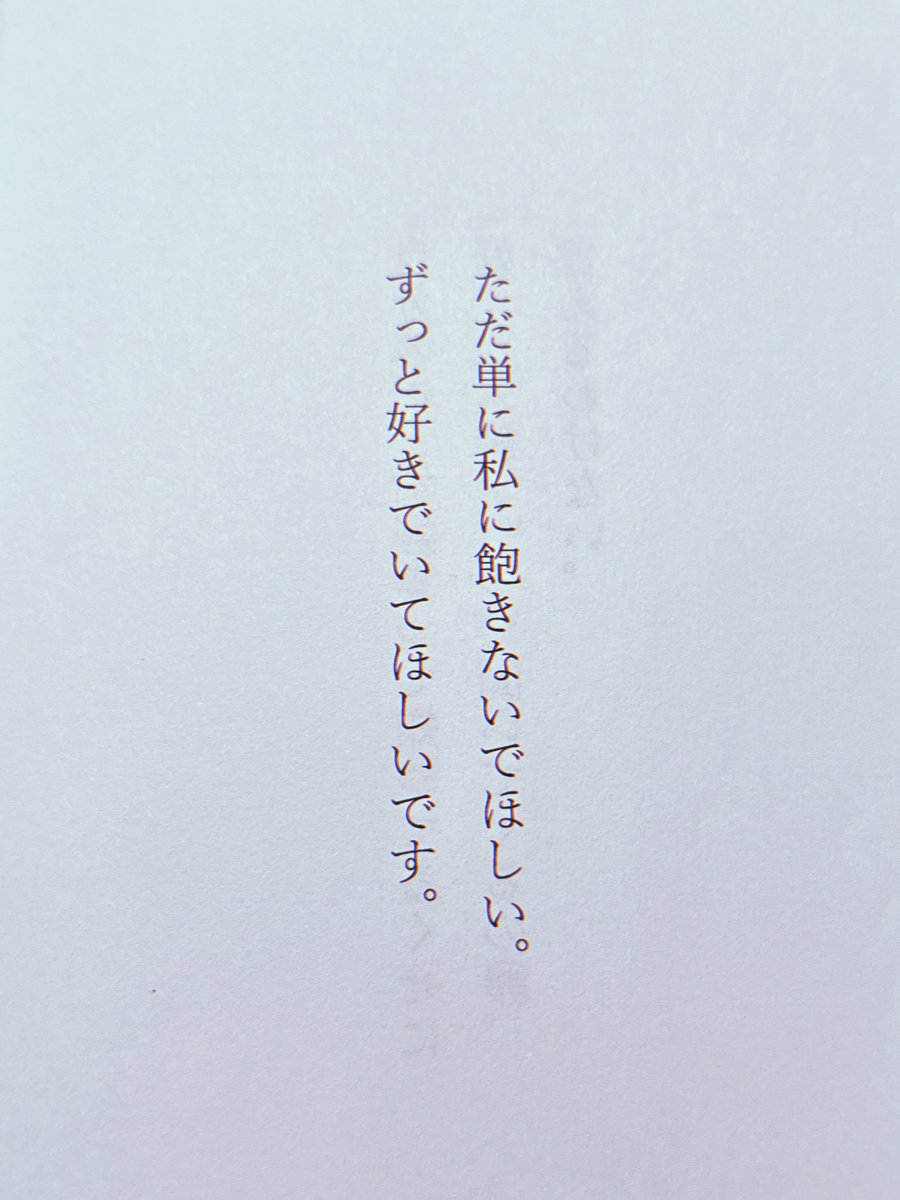 ただ単に私に飽きないでほしい。
ずっと好きでいてほしいです。